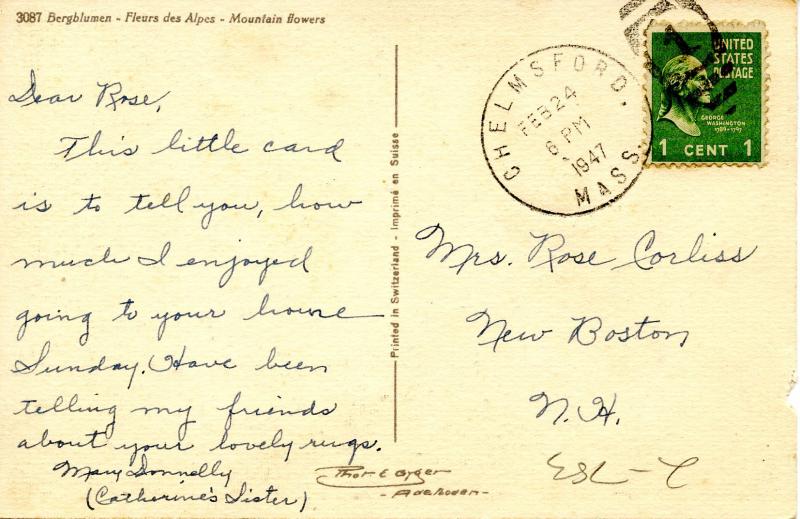 3087 Bergblumen - Fleurs des Alpes - Mountain flowers
Dear Rose,
This little card
is to tell you, how
much I enjoyed
going to your house
Sunday. Have been
telling my friends
about your lovely rugs.
Mary Donnelly
(Catherine's Sister)
Printed in Switzerland - Imprimé en Suisse
CHELMSFORD,
FEB 24
6 PM
1947
MASS.
UNITED
STATES
POSTAGE
GEORGE
WASHINGTON
1789-1797
1 CENT 1
Mrs. Rose Corliss
New Boston
N. H.
Thor E Gyger
- Adelboden -